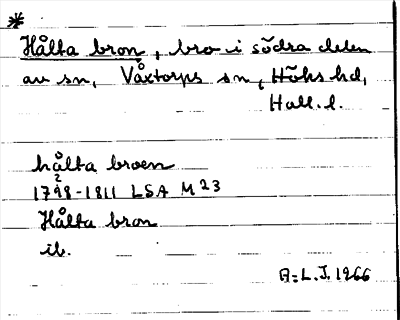 *
Hålta bron, bro i södra delen
av sn, Våxtorps sn, Höks hd,
Hall. l.
hålta broen
1798-1811 LSA M 23
Hålta bron
ib.
A: L. J. 1966